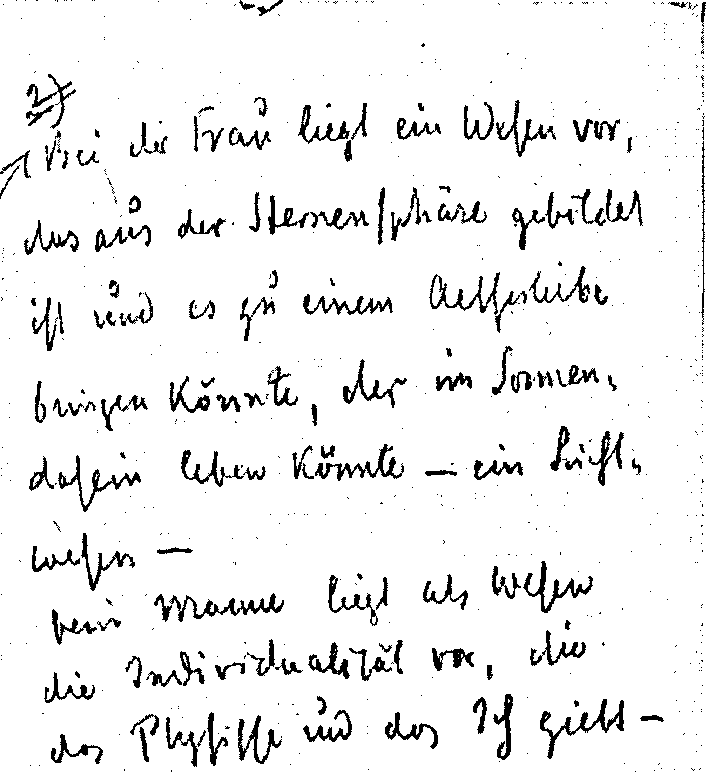 2)
Bei der Frau liegt ein Wesen vor,
das aus der Sternensphäre gebildet
ist und es zu einem Aetherleibe
bringen könnte, der im Sonnen-
dasein leben könnte — ein Licht-
wesen —
beim Manne liegt als Wesen
die Individualität vor, die
das Physische und das Ich giebt —